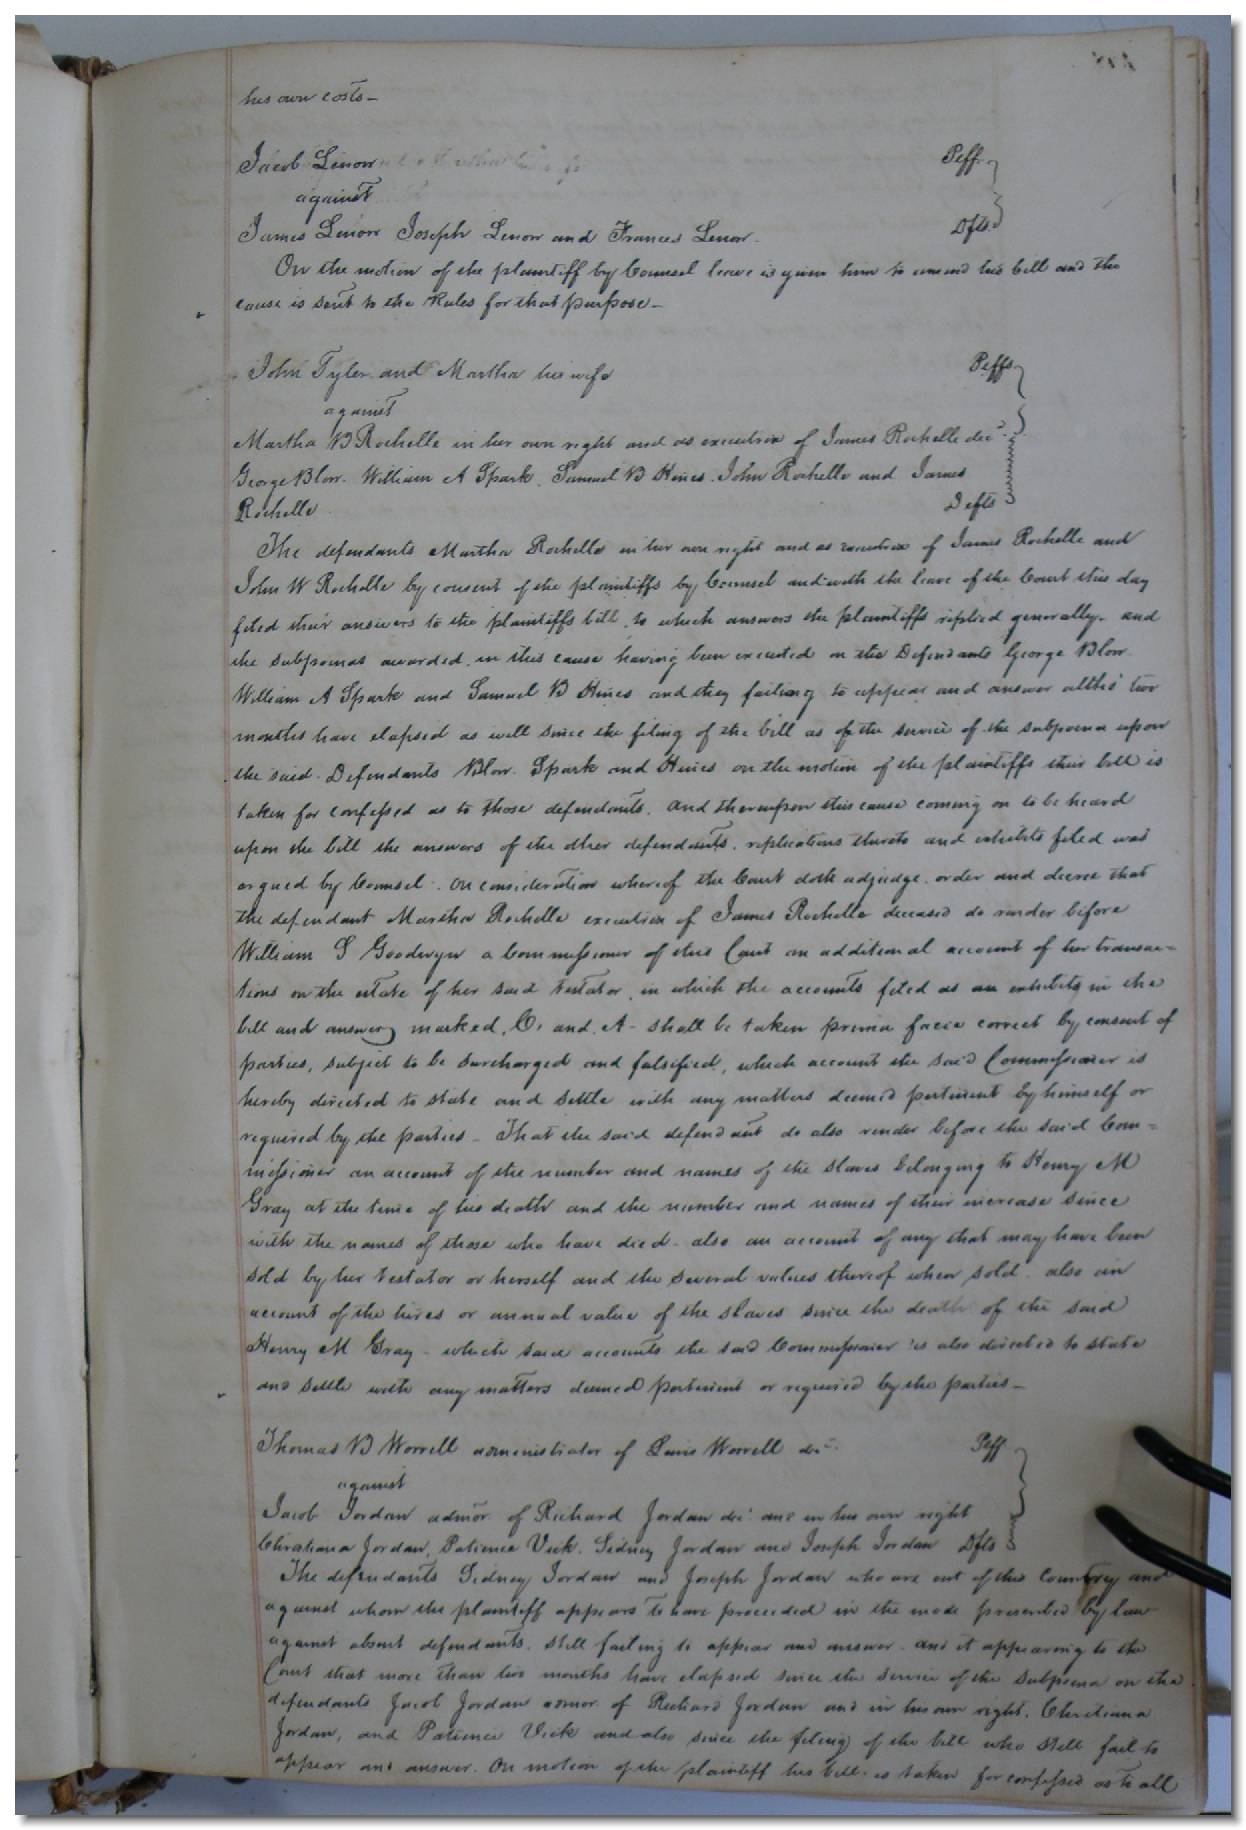 his own costs -
Jacob Lenow Peff.
against
James Lenow Joseph Lenow and Frances Lenow. Dfts.
On the motion of the plaintiff by Counsel leave is given him to amend his bill and the
cause is sent to the Rules for that purpose -
John Tyler and Martha his wife Peffs
against
Martha B Rochelle in her own right and as executrix of James Rochelle decd.
George Blow. William A Spark. Samuel B Hines. John Rochelle and James
Rochelle Defts
The defendants Martha Rochelle in her own right and as executrix of James Rochelle and
John W Rochelle by consent of the plaintiffs by Counsel and with the leave of the Court this day
filed their answers to the plaintiffs bill, to which answers the plaintiffs replied generally. and
the subpoenas awarded in this cause having been executed on the Defendants George Blow
William A Spark and Samuel B Hines and they failing to appear and answer altho' two
months have elapsed as well since the filing of the bill as of the service of the subpoena upon
the said Defendants Blow. Spark and Hines on the motion of the plaintiffs their bill is
taken for confessed as to those defendants. And thereupon this cause coming on to be heard
upon the bill the answers of the other defendants. replications thereto and exhibits filed was
argued by Counsel. On consideration whereof the Court doth adjudge. order and decree that
the defendant Martha Rochelle executrix of James Rochelle deceased do render before
William S Goodwyn a Commissioner of this Court an additional account of her transac=
tions on the estate of her said testator, in which the accounts filed as an exhibits in the
bill and answer marked, C. and A - shall be taken prima facie correct by consent of
parties, subject to be surcharged and falsified, which account the said Commissioner is
hereby directed to state and settle with any matters deemed pertinent by himself or
required by the parties - That the said defendant do also render before the said Com=
missioner an account of the number and names of the slaves belonging to Henry M
Gray at the time of his death and the number and names of their increase since
with the names of those who have died. also an account of any that may have been
sold by her testator or herself and the several values thereof when sold. also an
account of the hires or annual value of the slaves since the death of the said
Henry M Gray - which said accounts the said Commissioner is also directed to state
and settle with any matters deemed pertinent or required by the parties -
Thomas B Worrell administrator of Lewis Worrell decd. Peff
against
Jacob Jordan admor. of Richard Jordan decd. and in his own right
Christiana Jordan, Patience Vick. Sidney Jordan and Joseph Jordan Dfts
The defendants Sidney Jordan and Joseph Jordan who are out of this Country and
against whom the plaintiff appears to have proceeded in the mode prescribed by law
against absent defendants. still failing to appear and answer. and it appearing to the
Court that more than two months have elapsed since the service of the subpoena on the
defendants Jacob Jordan admor. of Richard Jordan and in his own right. Christiana
Jordan, and Patience Vick and also since the filing of the bill who still fail to
appear and answer. On motion of the plaintiff his bill is taken for confessed as to all